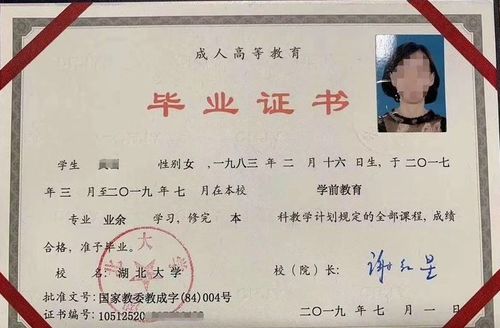 成人高等教育
毕业证书
学生 性别女,一九八三年 二 月 十六 日生,于二〇一七
年 三 月至二〇一九年 七 月在本校 学前教育
专业 业余 学习,修完 本 科教学计划规定的全部课程,成绩
合格,准予毕业。
校 名:湖北大学 校(院)长:
批准文号:国家教委教成字(84)004号
证书编号:10512520 二〇一九年 七 月 一 日